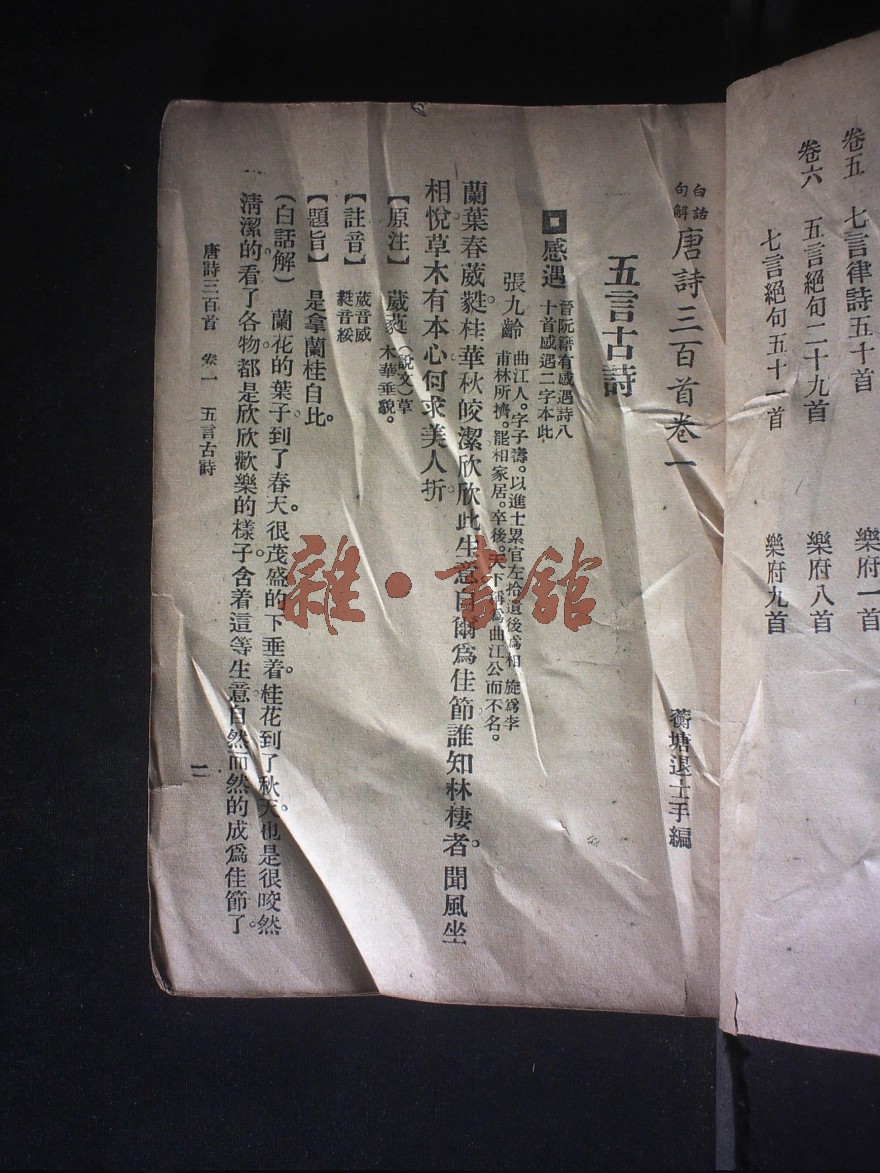 卷五 七言律詩五十首 樂府一首
卷六 五言絕句二十九首 樂府八首
七言絕句五十一首 樂府九首
白話句解 唐詩三百首卷一
蘅塘退士手編
五言古詩
感遇 晉阮籍有感遇詩八
十首感遇二字本此
張九齡 曲江人。字子濤。以進士累官左拾遺後爲相 旋爲李
甫林所擠。罷相家居。卒後。天下稱爲曲江公而不名。
蘭葉春葳蕤。桂華秋皎潔。欣欣此生意。自爾爲佳節。誰知林棲者。聞風坐
相悅。草木有本心。何求美人折。
【原注】 葳蕤(說文)草
木華垂貌。
【註音】 葳音威
蕤音綏
【題旨】 是拿蘭桂自比。
(白話解) 蘭花的葉子。到了春天。很茂盛的下垂着。桂花到了秋天。也是很皎然
清潔的。看了各物。都是欣欣歡樂的樣子。含着這等生意。自然而然的成爲佳節了。
唐詩三百首 卷一 五言古詩
一
雜·書館